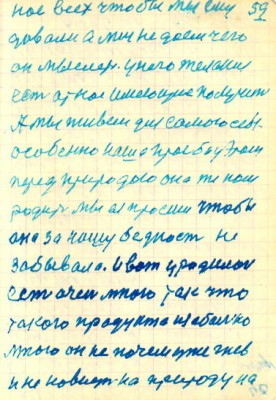 ное всех чтобы мы ему 59
давали а мы не даем чего
он мыслел. у него желания
ест одное имеющие получит
А мы живем для самого себя.
особенно наша просьба Этом
перед природою она же нам
родит мы ея просим чтобы
она за нашу бедност не
забывала. И вот уродилос
ест очен много так что
такого продукта изобилно
много он не почем уже гнев
и не новист на природу на